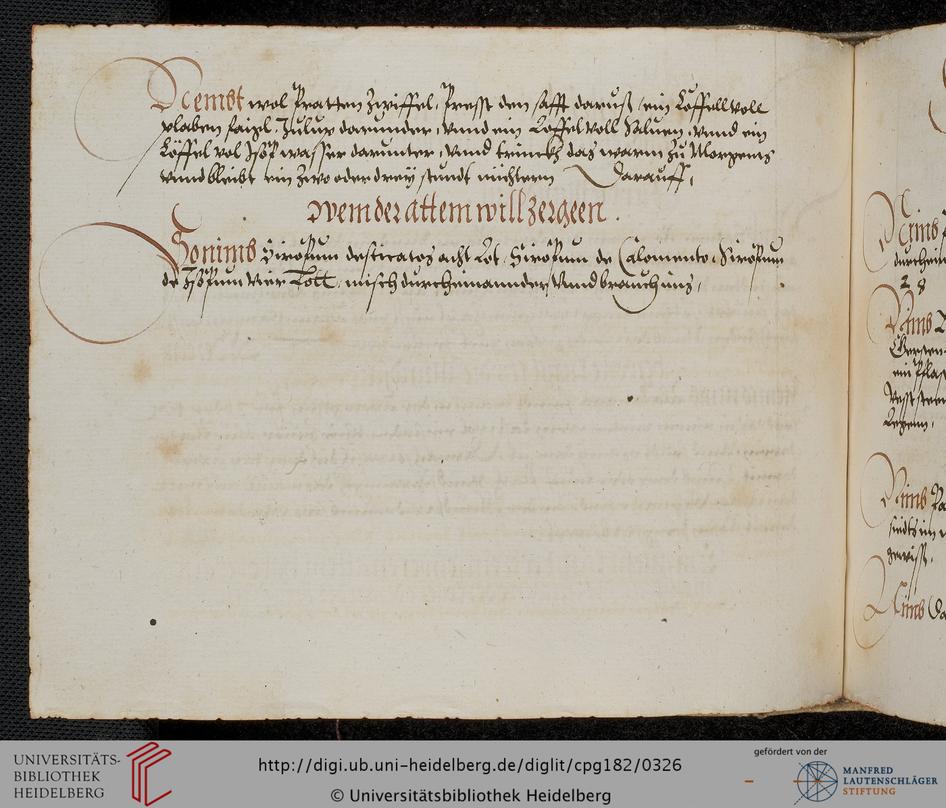 Nembt wol Pratten Zwiffel, Press den safft daruß, ein Löffell voll
plaben faigl Julup darunder, vnnd ein Löffel voll Saluen, vnnd ein
Löffel vol Isop wasser darunter, vnnd trinckh das warm zu Morgens
vnnd bleibt ein zwo oder drey stundt nüchtern Darauff,
Wem der attem will zergeen.
So nimb Siropum desticatos acht Lot, Siropum de Calomento, Siropum
de Isopum vier Lott, misch durcheinannder, vnnd brauch uns,
Nimb
durchein
28
Nimb
Gersten
ein Pflas
Legenn,
Nimb
gewiss,
Nimb
UNIVERSITÄTS-
BIBLIOTHEK
HEIDELBERG
http://digi.ub.uni-heidelberg.de/diglit/cpg182/0326
© Universitätsbibliothek Heidelberg
gefördert von der
MANFRED
LAUTENSCHLÄGER
STIFTUNG